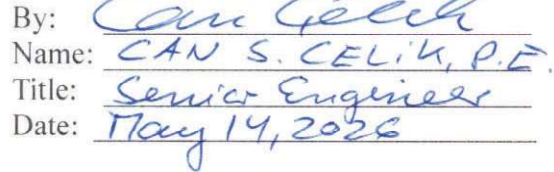 By: Can Celik
Name: CAN S. CELiK, P.E.
Title: Senior Engineer
Date: May 14, 2026